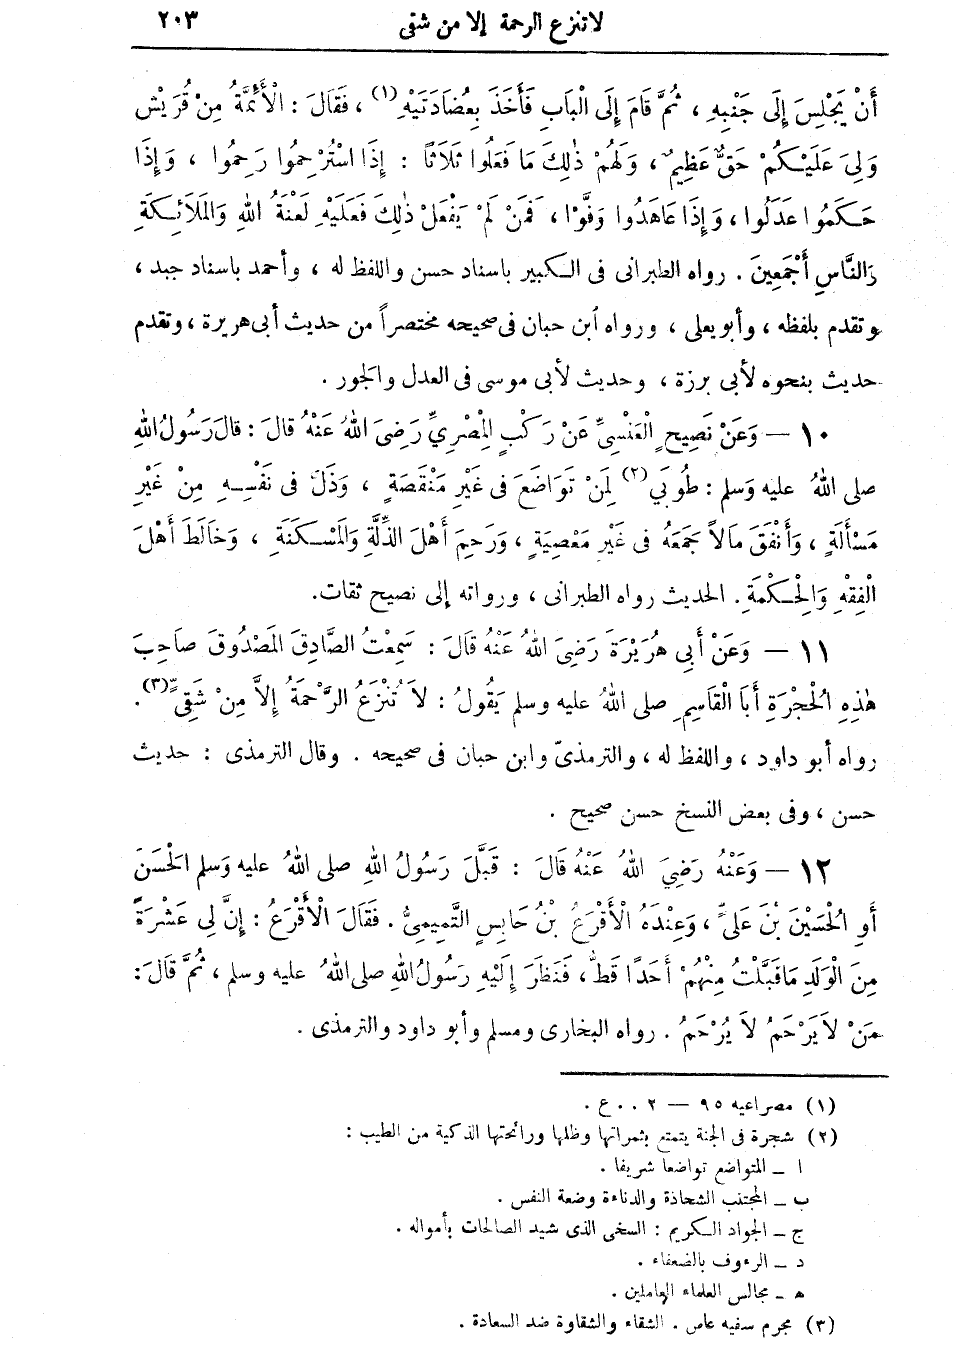 لا تنزع الرحمة إلا من شقى ٢٠٣
أَنْ يَجْلِسَ إِلَى جَنْبِهِ ، ثُمَّ قَامَ إِلَى الْبَابِ فَأَخَذَ بِعُضَادَتَيْهِ (١) ، فَقَالَ : الْأَئِمَّةُ مِنْ قُرَيْشٍ
وَلِىَ عَلَيْكُمْ حَقٌّ عَظِيمٌ ، وَلَهُمْ ذٰلِكَ مَا فَعَلُوا ثَلَاثًا : إِذَا اسْتُرْحِمُوا رَحِمُوا ، وَإِذَا
حَكَمُوا عَدَلُوا ، وَإِذَا عَاهَدُوا وَفَّوْا ، فَمَنْ لَمْ يَفْعَلْ ذٰلِكَ فَعَلَيْهِ لَعْنَةُ اللهِ وَالْمَلَائِكَةِ
وَالنَّاسِ أَجْمَعِينَ . رواه الطبرانى فى الكبير باسناد حسن واللفظ له ، وأحمد باسناد جيد ،
وتقدم بلفظه ، وأبو يعلى ، ورواه ابن حبان فى صحيحه مختصراً من حديث أبى هريرة ، وتقدم
حديث بنحوه لأبى برزة ، وحديث لأبى موسى فى العدل والجور .
١٠ — وَعَنْ نَصِيحٍ الْعَنْسِىِّ عَنْ رَكْبٍ الْمِصْرِيِّ رَضِىَ اللهُ عَنْهُ قَالَ : قَالَ رَسُولُ اللهِ
صلى اللهُ عليه وَسلم : طُوبَى (٢) لِمَنْ تَوَاضَعَ فِى غَيْرِ مَنْقَصَةٍ ، وَذَلَّ فِى نَفْسِهِ مِنْ غَيْرِ
مَسْأَلَةٍ ، وَأَنْفَقَ مَالاً جَمَعَهُ فِى غَيْرِ مَعْصِيَةٍ ، وَرَحِمَ أَهْلَ الذِّلَّةِ وَالْمَسْكَنَةِ ، وَخَالَطَ أَهْلَ
الْفِقْهِ وَالْحِكْمَةِ . الحديث رواه الطبرانى ، ورواته إلى نصيح ثقات.
١١ — وَعَنْ أَبِى هُرَيْرَةَ رَضِىَ اللهُ عَنْهُ قَالَ : سَمِعْتُ الصَّادِقَ الْمَصْدُوقَ صَاحِبَ
هٰذِهِ الْحُجْرَةِ أَبَا الْقَاسِمِ صلى اللهُ عليه وسلم يَقُولُ : لاَ تُنْزَعُ الرَّحْمَةُ إِلاَّ مِنْ شَقِىٍّ (٣) .
رواه أبو داود ، واللفظ له ، والترمذىّ وابن حبان فى صحيحه . وقال الترمذى : حديث
حسن ، وفى بعض النسخ حسن صحيح .
١٢ — وَعَنْهُ رَضِيَ اللهُ عَنْهُ قَالَ : قَبَّلَ رَسُولُ اللهِ صلى اللهُ عليه وَسلم الْحَسَنَ
أَوِ الْحُسَيْنَ بْنَ عَلِىٍّ ، وَعِنْدَهُ الْأَقْرَعُ بْنُ حَابِسٍ التَّمِيمِىُّ . فَقَالَ الْأَقْرَعُ : إِنَّ لِى عَشْرَةً
مِنَ الْوَلَدِ مَا قَبَّلْتُ مِنْهُمْ أَحَدًا قَطُّ ، فَنَظَرَ إِلَيْهِ رَسُولُ اللهِ صلى اللهُ عليه وسلم ، ثُمَّ قَالَ :
مَنْ لاَ يَرْحَمُ لاَ يُرْحَمُ . رواه البخارى ومسلم وأبو داود والترمذى .
(١) مصراعيه ٩٥ — ٢ . . ع .
(٢) شجرة فى الجنة يتمتع بثمراتها وظلها ورائحتها الذكية من الطيب :
ا ــ المتواضع تواضعا شريفا .
ب ــ المجتنب الشحاذة والدناءة وضعة النفس .
ج ــ الجواد الكريم : السخى الذى شيد الصالحات بأمواله .
د ــ الرءوف بالضعفاء .
ه ــ مجالس العلماء العاملين .
(٣) مجرم سفيه عاص . الشقاء والشقاوة ضد السعادة .